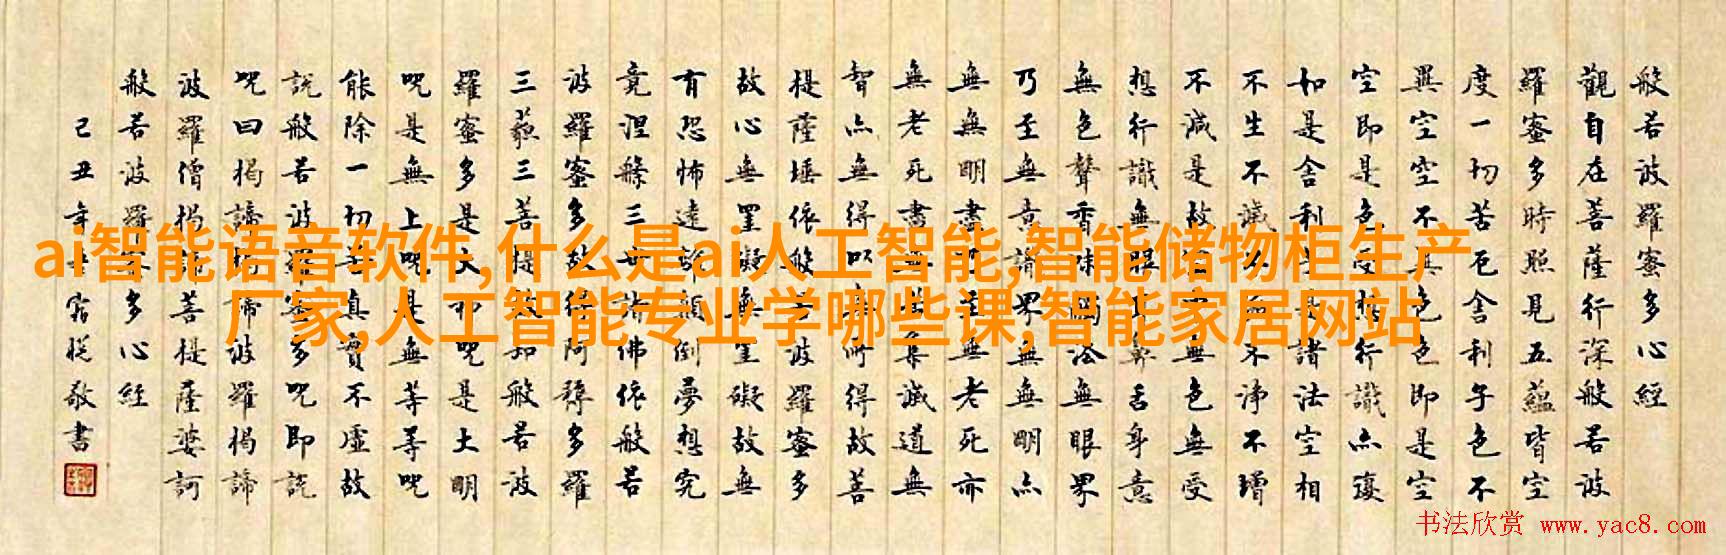 ai智能语音软件,什么是ai人工智能,智能储物柜生产
厂家,人工智能专业学哪些课,智能家居网站
般若波羅蜜多心經
觀自在菩薩行深般若波
羅蜜多時照見五蘊皆空
度一切苦厄舍利子色不
異空空不異色色即是空
空即是色受想行識亦復
如是舍利子是諸法空相
不生不滅不垢不淨不增
不減是故空中無色無受
想行識無眼耳鼻舌身意
無色聲香味觸法無眼界
乃至無意識界無無明亦
無無明盡乃至無老死亦
無老死盡無苦集滅道無
智亦無得以無所得故菩
提薩埵依般若波羅蜜多
故心無罣礙無罣礙故無
有恐怖遠離顛倒夢想究
竟涅槃三世諸佛依般若
波羅蜜多故得阿耨多羅
三藐三菩提故知般若波
羅蜜多是大神咒是大明
咒是無上咒是無等等咒
能除一切苦真實不虛故
說般若波羅蜜多咒即說
咒曰揭諦揭諦波羅揭諦
波羅僧揭諦菩提薩婆訶
般若波羅蜜多心經
己丑年敬書
书法欣赏 www.yac8.com